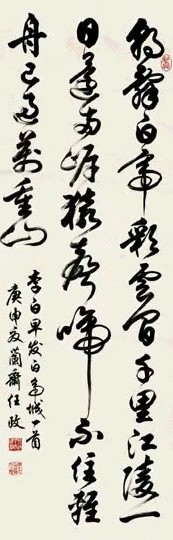 朝辭白帝彩雲間千里江陵一
日還兩岸猿聲啼不住輕
舟已過萬重山
李白早发白帝城一首
庚申夏蘭齋任政